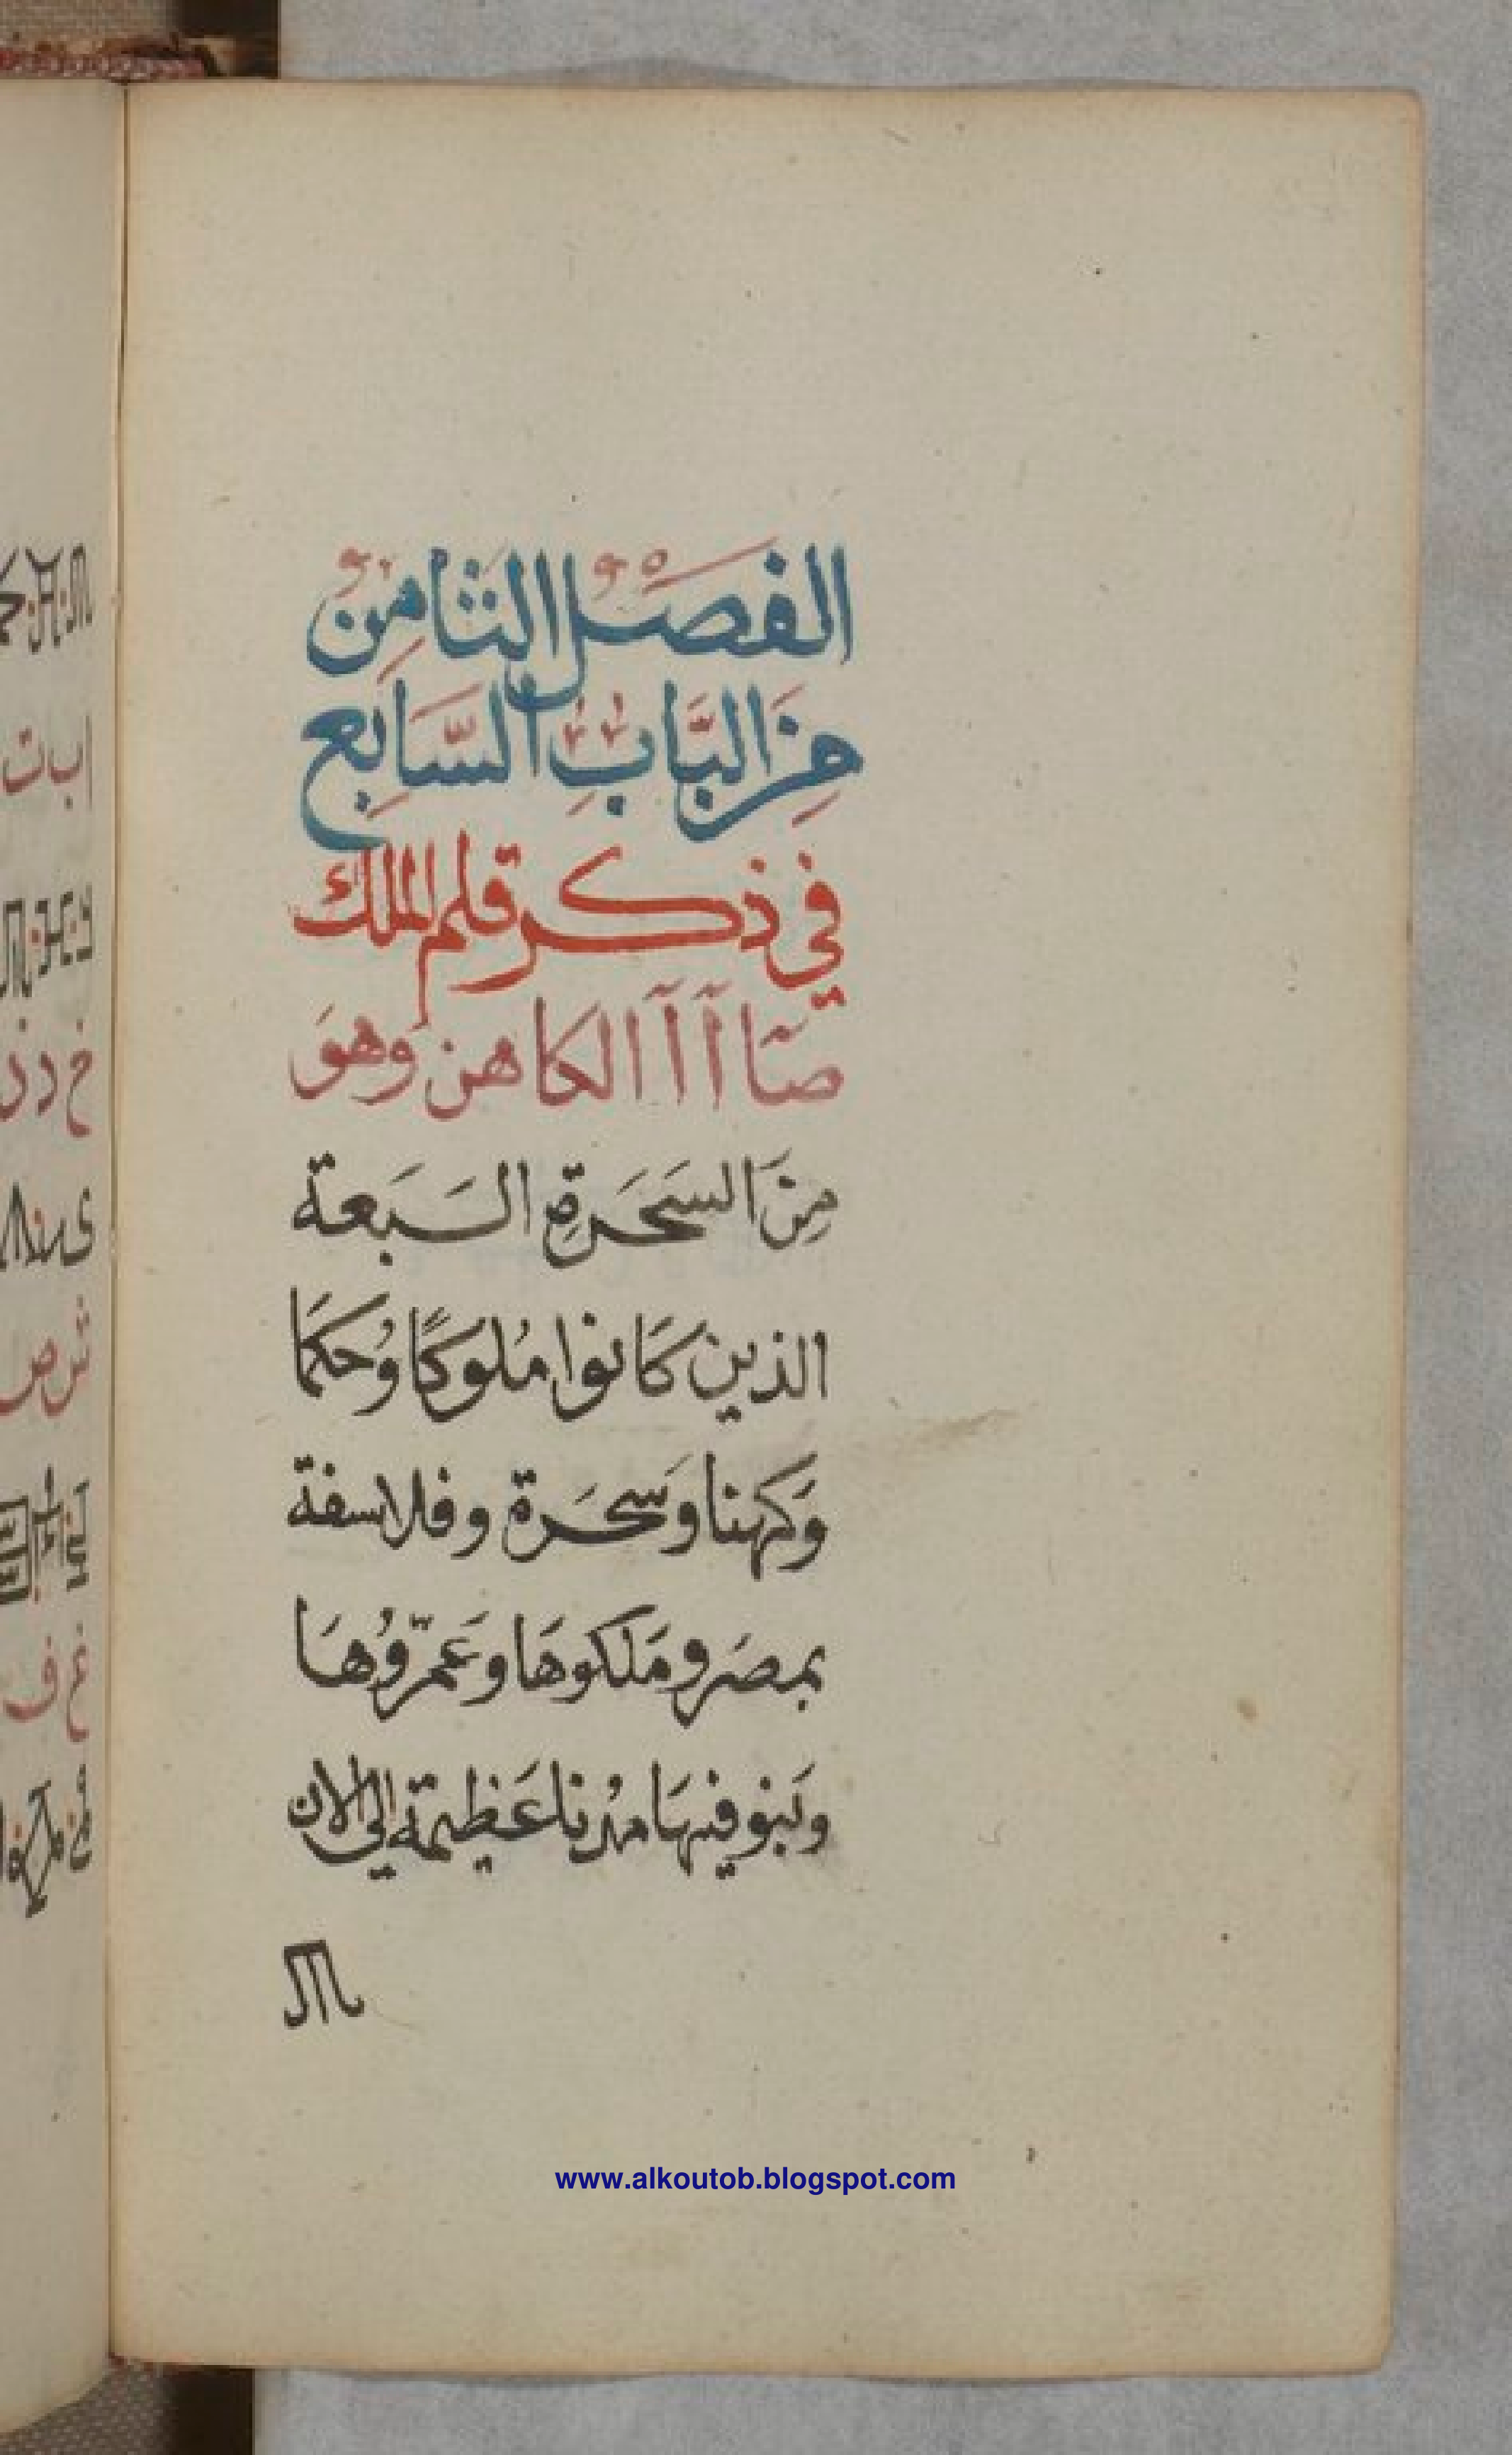 الفَصْلُ الثامِن
مِنَ البَّابِ السَّابِع
في ذكر قلم الملك
صَاآآ الكاهن وهوَ
مِنَ السَحَرةِ السَبَعة
الذين كَانوا مُلوكًا وُحكمَا
وَكهنا وسَحَرة وفلاسفة
بمصَر ومَلكوهَا وعَمّروُهَا
وبَنو فيهَا مدُنا عَظيمة الي الان
www.alkoutob.blogspot.com
اب ت
خ د ذ
غ ف